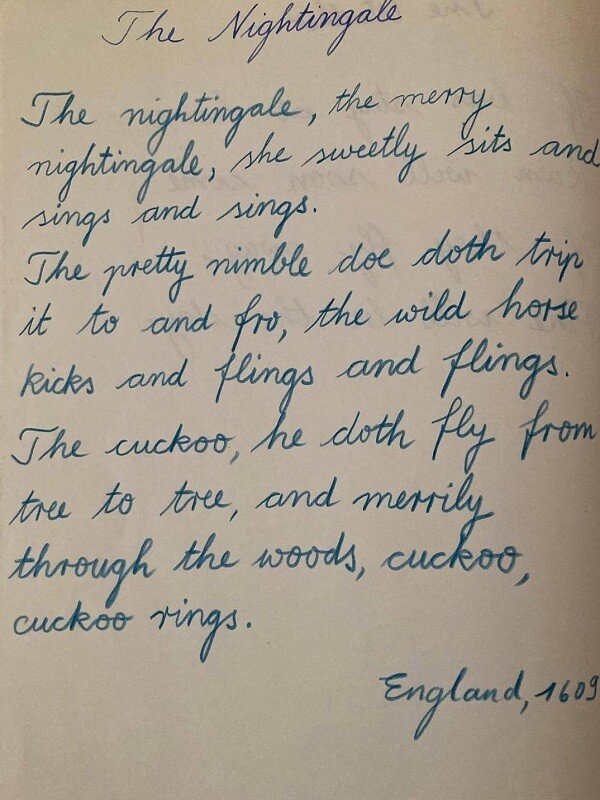 The Nightingale
The nightingale, the merry
nightingale, she sweetly sits and
sings and sings.
The pretty nimble doe doth trip
it to and fro, the wild horse
kicks and flings and flings.
The cuckoo, he doth fly from
tree to tree, and merrily
through the woods, cuckoo,
cuckoo rings.
England, 1609